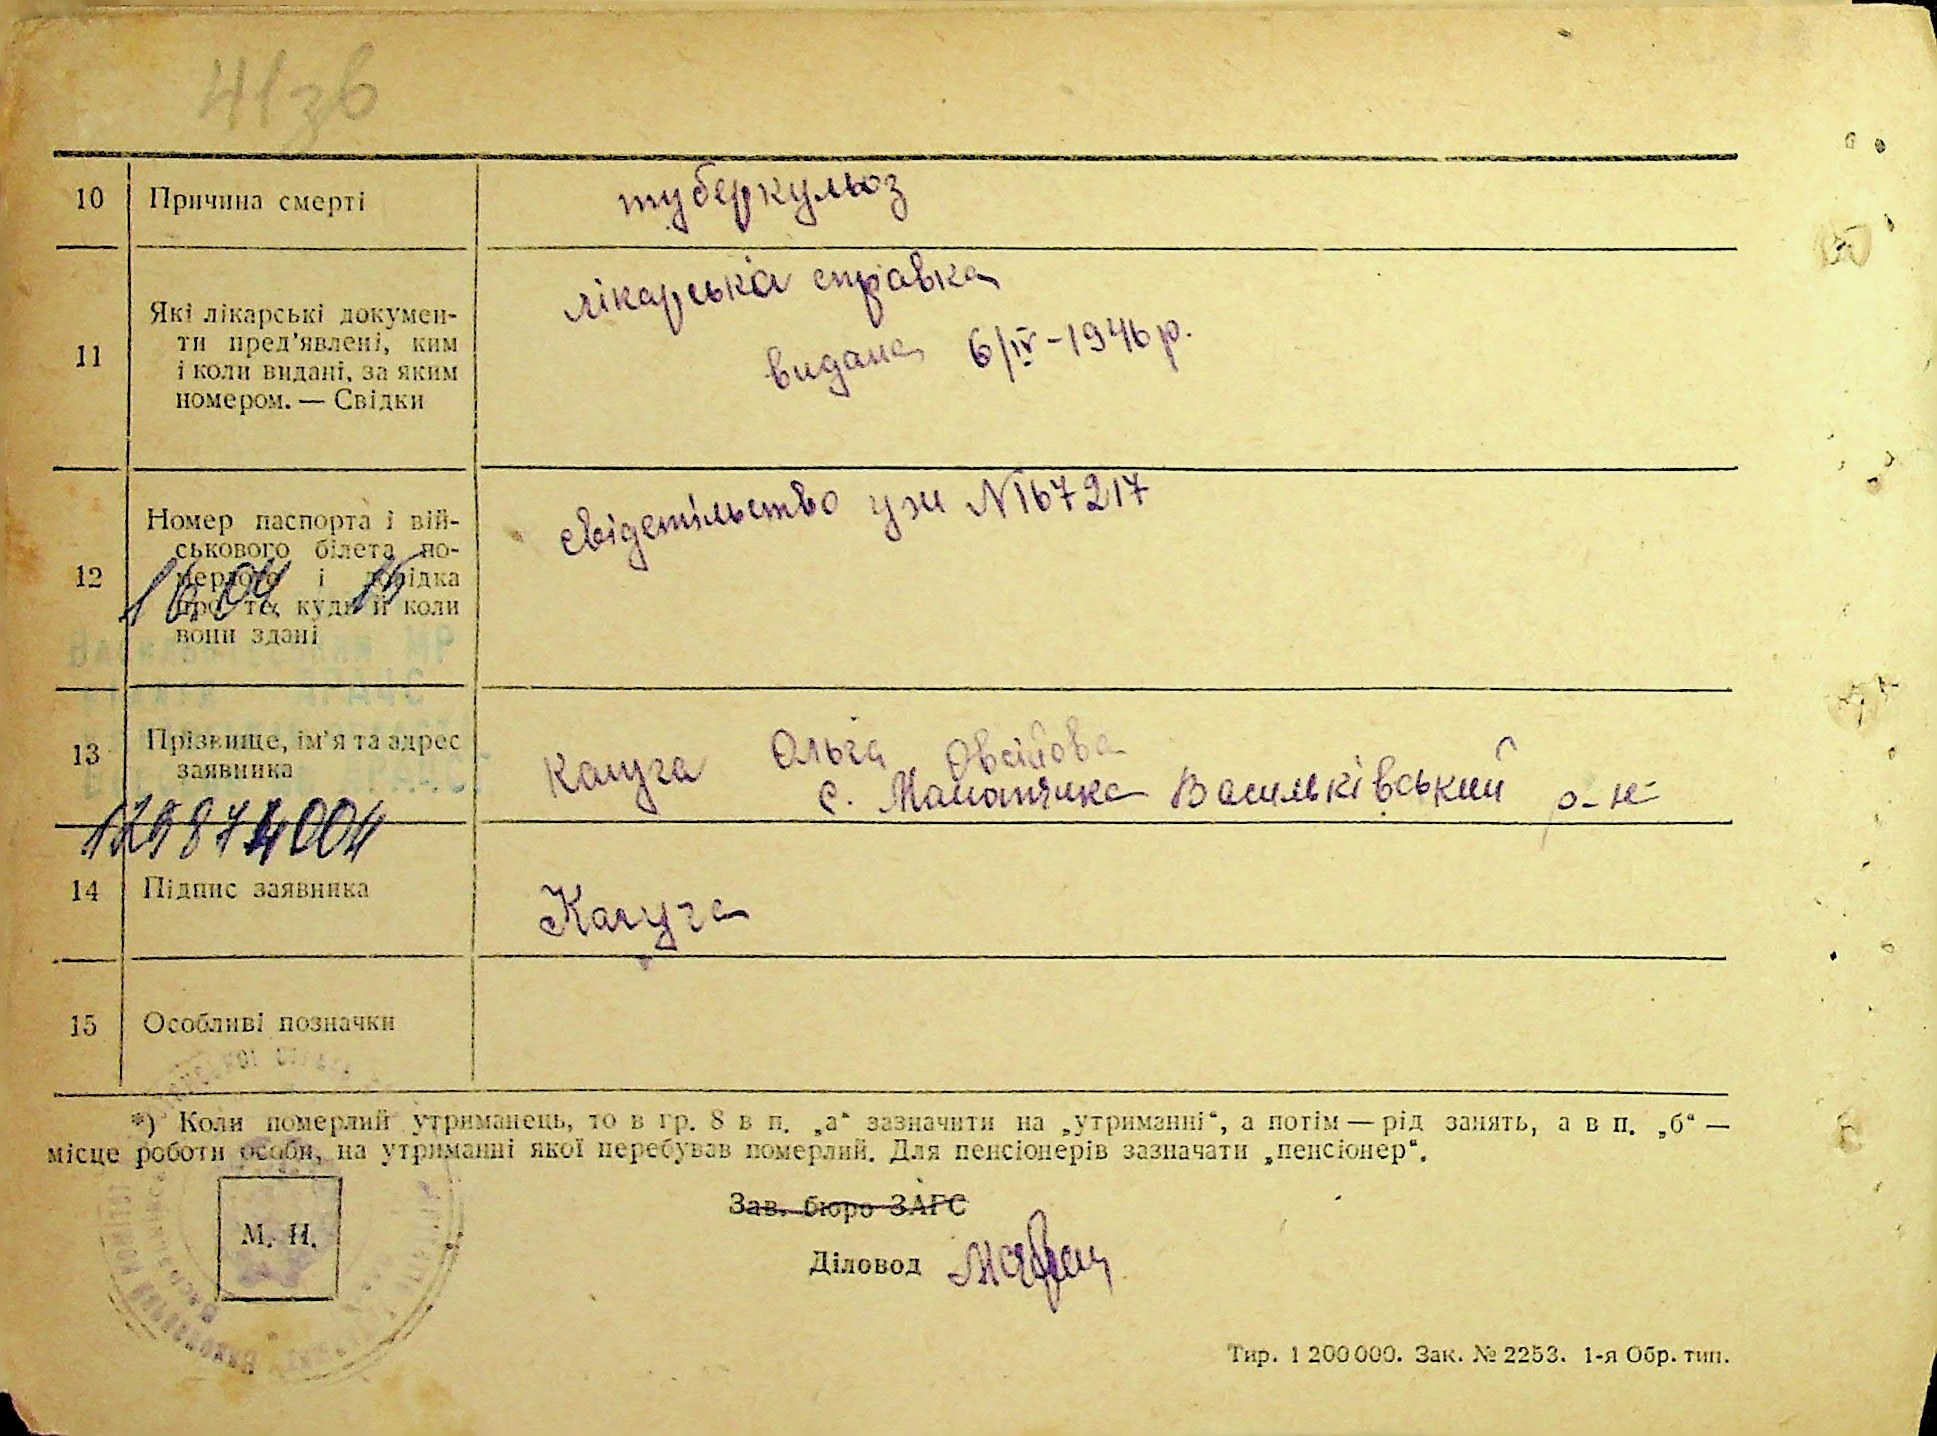 41зв
10 Причина смерті туберкульоз
11 Які лікарські докумен-
ти пред'явлені, ким
і коли видані, за яким
номером. — Свідки
лікарська справка
видана 6/IV-1946 р.
12 Номер паспорта і вій-
ськового білета по-
мерлого і довідка
про те, куди й коли
вони здані
свідетільство уж N167217
16.04 15
13 Прізвище, ім'я та адрес
заявника
Калуга Ольга Овсійова
с. Мытниця Васильківський р-н
1298 4004
14 Підпис заявника Калуга
15 Особливі позначки
*) Коли померлий утриманець, то в гр. 8 в п. „а“ зазначити на „утриманні“, а потім — рід занять, а в п. „б“ —
місце роботи особи, на утриманні якої перебував померлий. Для пенсіонерів зазначати „пенсіонер“.
М. П.
Зав. бюро ЗАГС
Діловод
Тир. 1 200 000. Зак. № 2253. 1-я Обр. тип.